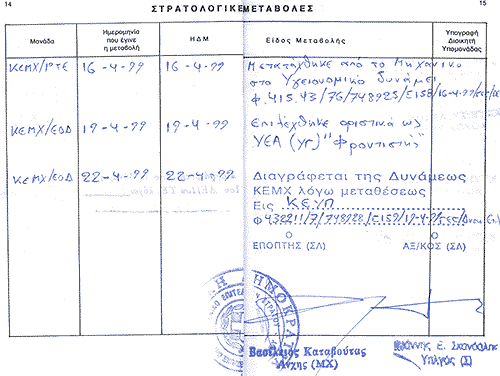 14
15
ΣΤΡΑΤΟΛΟΓΙΚΕΣ ΜΕΤΑΒΟΛΕΣ
Μονάδα
Ημερομηνία που έγινε η μεταβολή
ΗΔΜ
Είδος Μεταβολής
Υπογραφή Διοικητή Υπομονάδας
ΚΕΜΧ/ΙΡΤΕ 16-4-99 16-4-99 Μετατάχθηκε από το Μηχανικό
στο Υγειονομικό δυνάμει
Φ.415.43/76/748925/Σ158/16-4-99/
ΚΕΜΧ/ΕΟΔ 19-4-99 19-4-99 Επιλέχθηκε οριστικά ως
ΥΕΑ (ΥΓ) "Φροντιστής"
ΚΕΜΧ/ΕΟΔ 22-4-99 22-4-99 Διαγράφεται της Δυνάμεως
ΚΕΜΧ λόγω μεταθέσεως
Εις ΚΕΥΠ
Φ432211/7/748928/Σ159/19-4-99/
Ο Ο
ΕΠΟΠΤΗΣ (ΣΛ) ΑΞ/ΚΟΣ (ΣΛ)
ΔΗΜΟΚΡΑΤ
Βασίλειος Καταβούτας
Ανχης (ΜΧ)
Ιωάννης Ε. Σκανδάλης
Υπλγός (Σ)